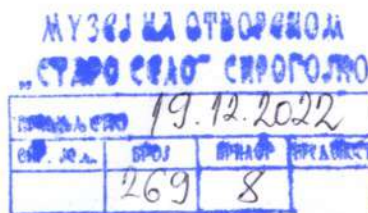 МУЗЕЈ НА ОТВОРЕНОМ
„СТАРО СЕЛО" СИРОГОЈНО
ПРИМЉЕНО 19.12.2022
ОРГ. ЈЕД. БРОЈ ПРИЛОГ ВРЕДНОСТ
269 8